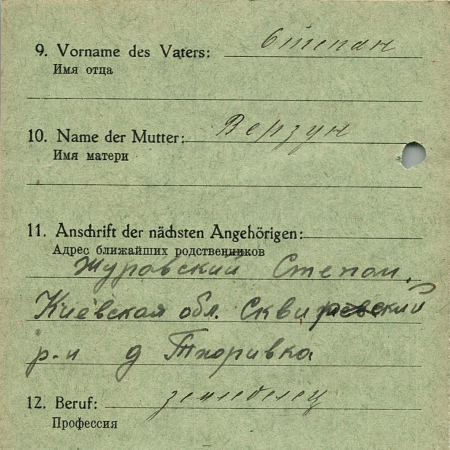 9. Vorname des Vaters: Степан
Имя отца
10. Name der Mutter: Верзун
Имя матери
11. Anschrift der nächsten Angehörigen:
Адрес ближайших родственников
Журавский Степан.
Киевская обл. Сквирский
р-н д Тхоривка
12. Beruf: земледелец
Профессия